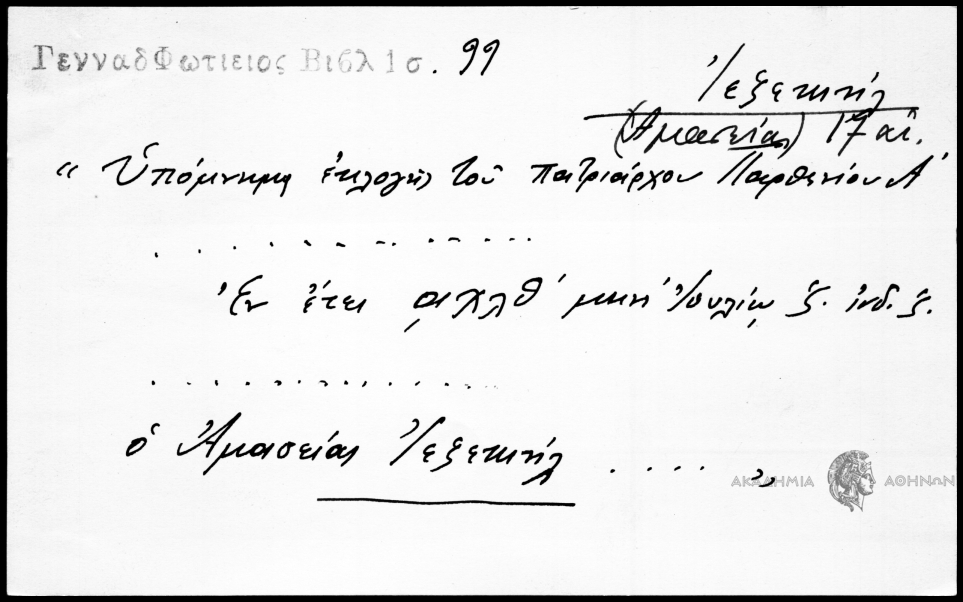 ΓενναδΦωτιειος Βιβλ 1σ. 99
Ἰεζεκιήλ
(Ἀμασείας) 17 αἰ.
“ Ὑπόμνημα ἐκλογῆς τοῦ πατριάρχου Παρθενίου Α'
. . . . . . . . . . . . . . .
Ἐν ἔτει ͵αχλθ' μηνὶ Ἰουλίῳ ζ. ἰνδ. ζ.
. . . . . . . . . . . . . . .
ὁ Ἀμασείας Ἰεζεκιήλ . . . . „
ΑΚΑΔΗΜΙΑ ΑΘΗΝΩΝ